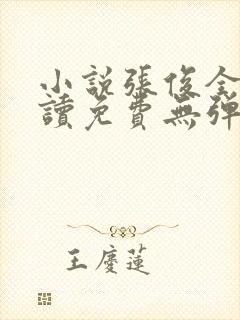 小說張俊全
讀免費無彈
王慶蓮